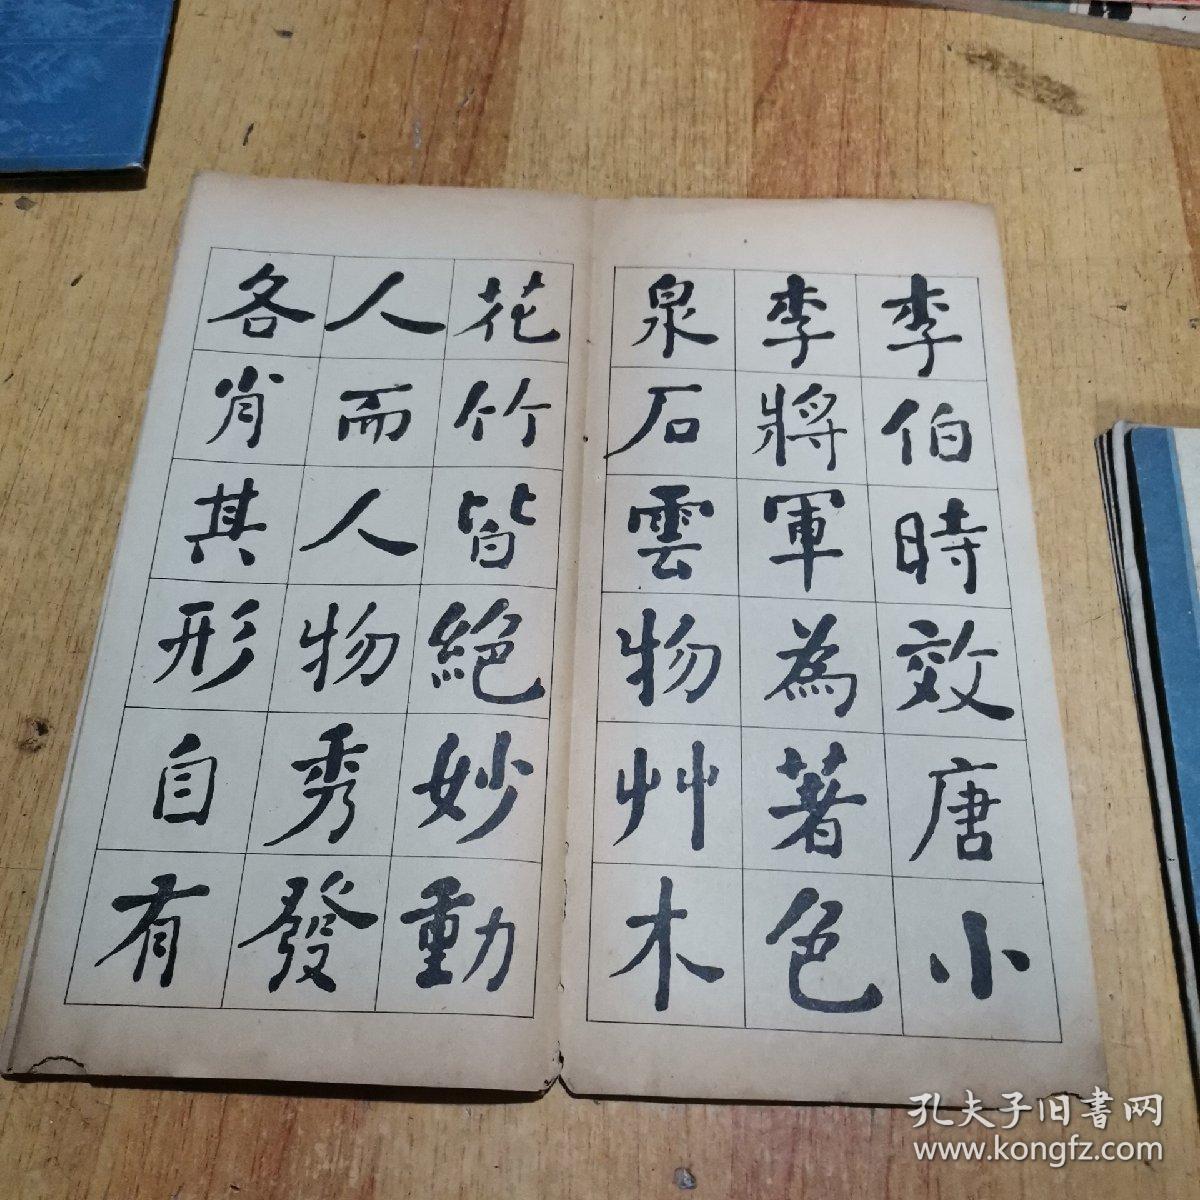 李伯時效唐小
李將軍為著色
泉石雲物艸木
花竹皆絕妙動
人而人物秀發
各肖其形自有
孔夫子旧書网
www.kongfz.com